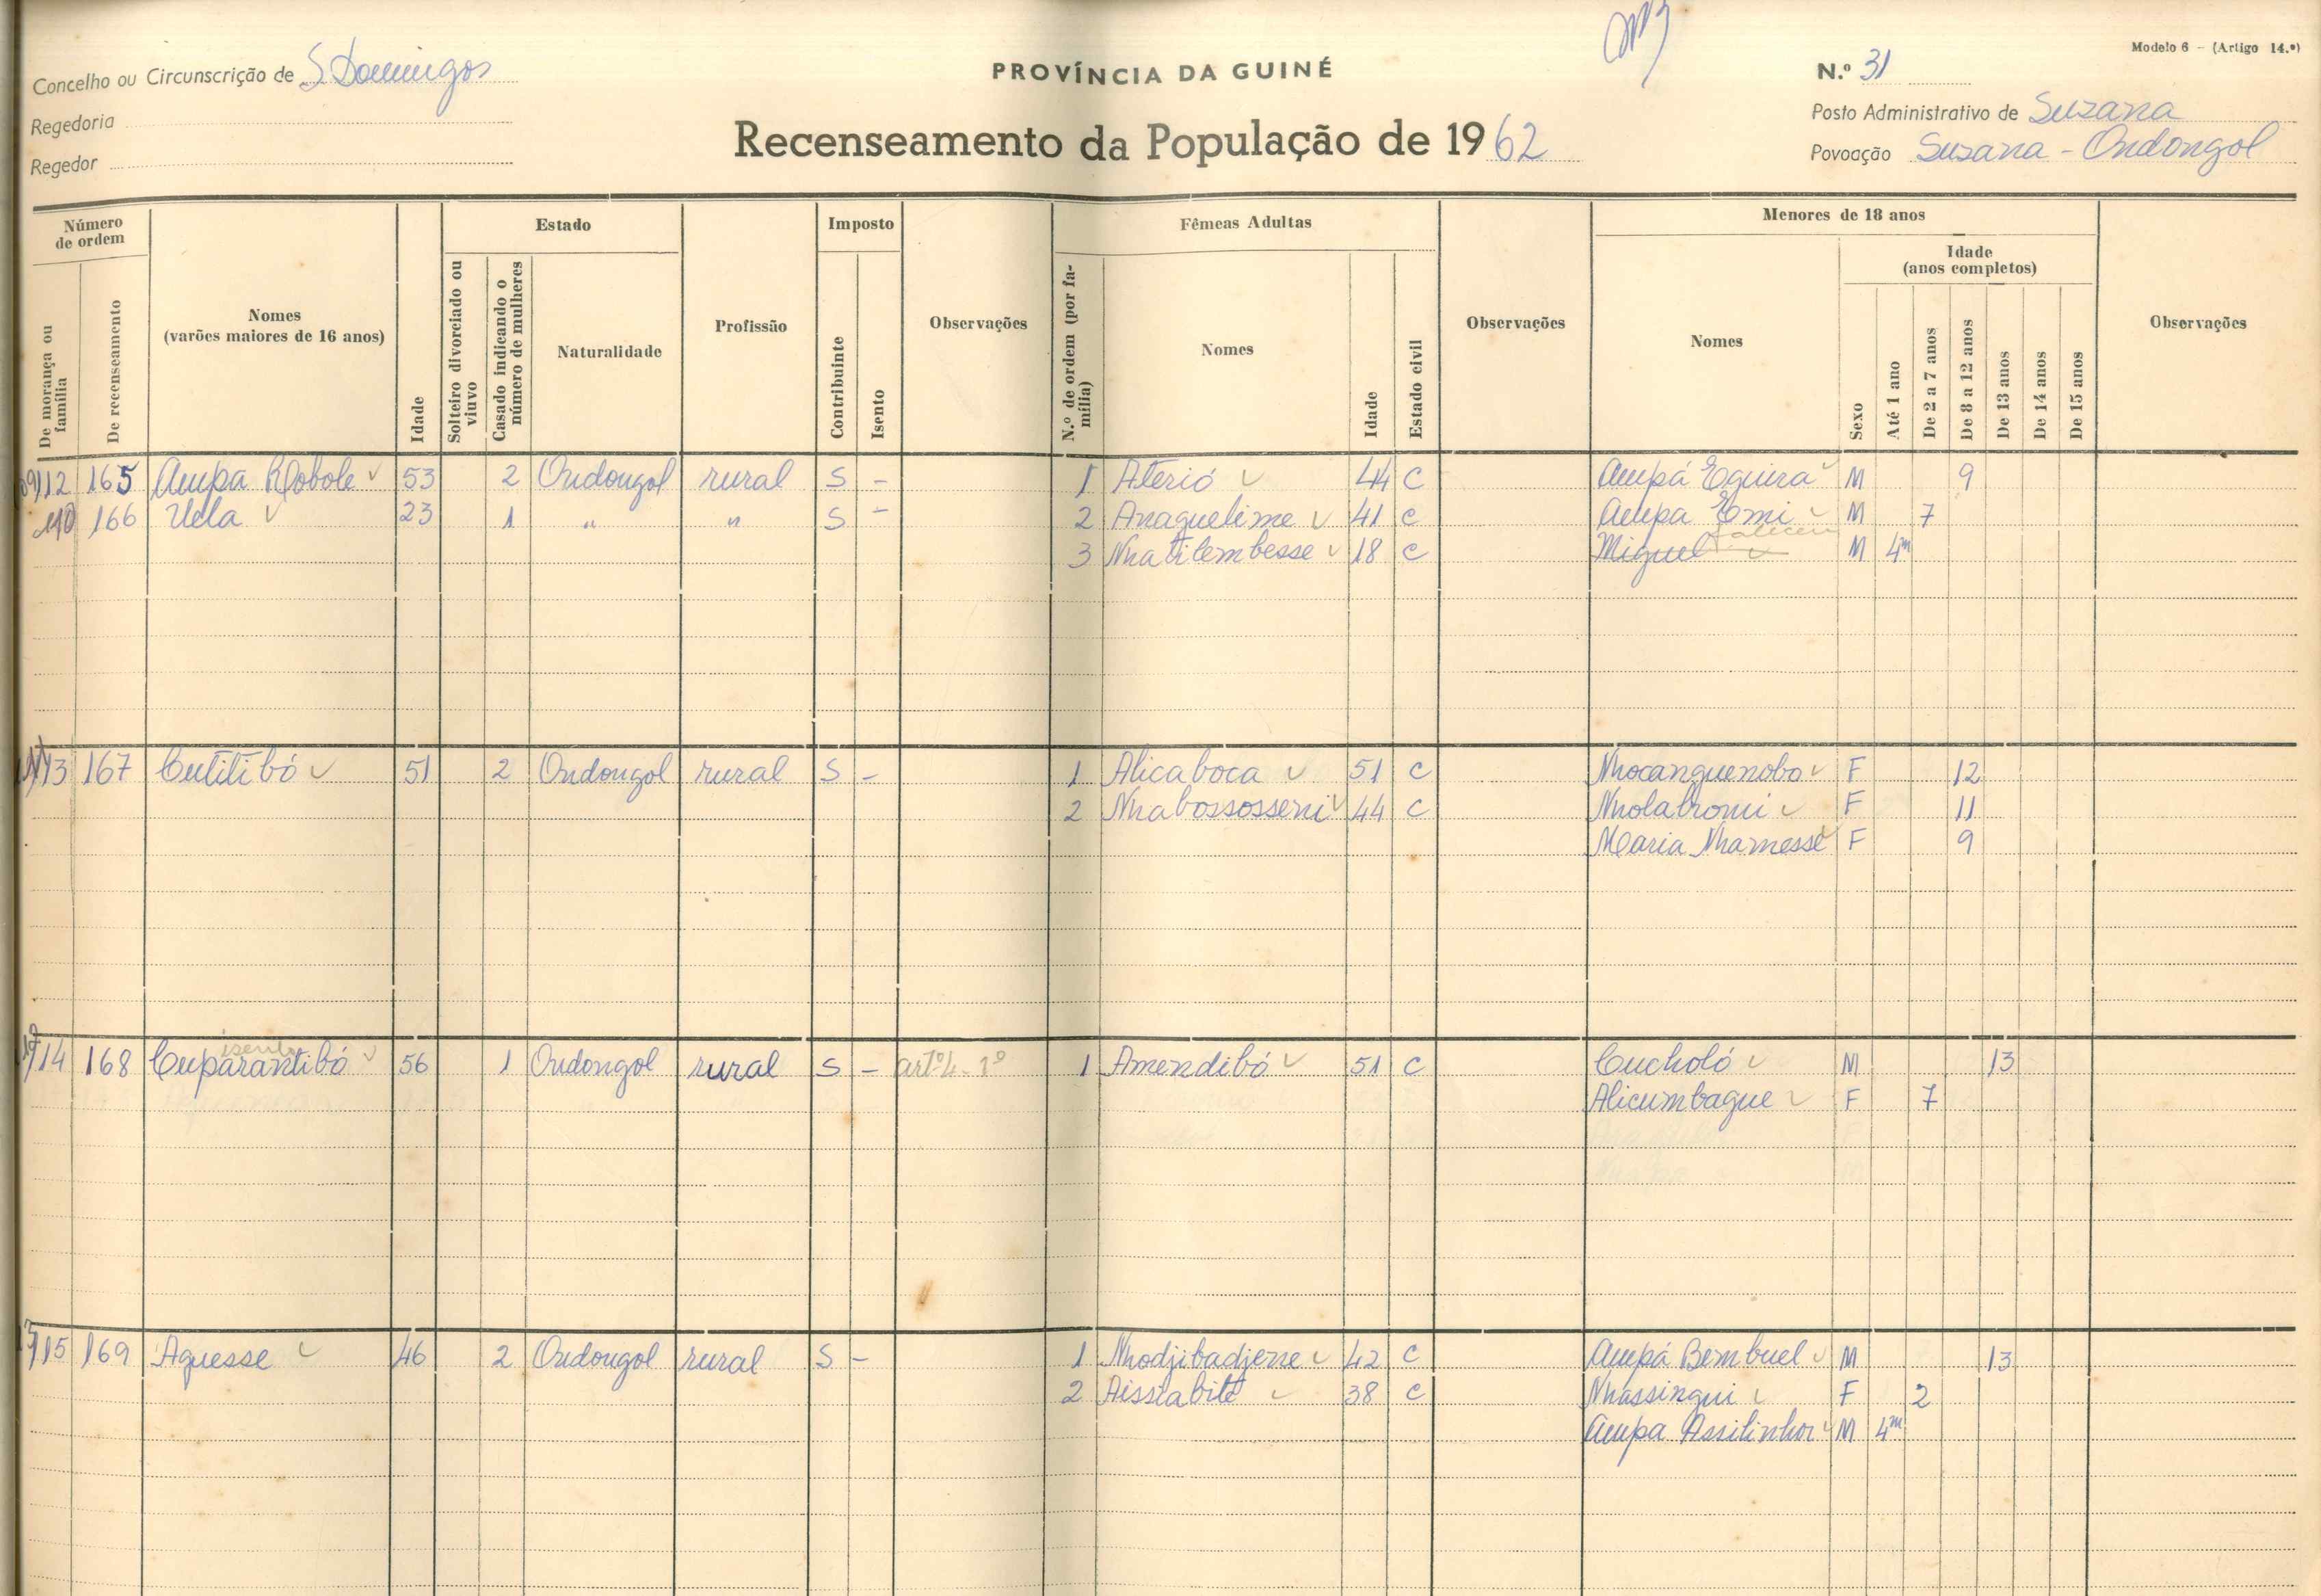 Modelo 6 - (Artigo 14.º)
Concelho ou Circunscrição de S Domingos
PROVÍNCIA DA GUINÉ
N.º 31
Regedoria
Posto Administrativo de Suzana
Regedor
Recenseamento da População de 1962
Povoação Suzana - Ondongol
Número de ordem
Estado
Imposto
Fêmeas Adultas
Menores de 18 anos
De morança ou família
De recenseamento
Nomes
(varões maiores de 16 anos)
Idade
Solteiro divorciado ou viuvo
Casado indicando o número de mulheres
Naturalidade
Profissão
Contribuinte
Isento
Observações
N.º de ordem (por família)
Nomes
Idade
Estado civil
Observações
Nomes
Sexo
Idade
(anos completos)
Até 1 ano
De 2 a 7 anos
De 8 a 12 anos
De 13 anos
De 14 anos
De 15 anos
Observações
112 165 Ampa 53 2 Ondongol rural S - 1 Aterió 44 C Ampá Equira M 9
110 166 Uela 23 1 " " S - 2 Anaquelime 41 C Ampa Emi M 7
faleceu
3 Nhatilembesse 18 C Miguel M 4m
113 167 Cutitibó 51 2 Ondongol rural S - 1 Alicaboca 51 C Nhocanguenobo F 12
2 Nhabossosseni 44 C Nholatromi F 11
Maria Nhamesse F 9
isento
114 168 Cuparantibó 56 1 Ondongol rural S - artº 4 - 1º 1 Amendibó 51 C Cucholó M 13
Alicumbague F 7
115 169 Aguesse 46 2 Ondongol rural S - 1 Nhodjibadjene 42 C Ampá Bembuel M 13
2 Aissiabite 38 C Nhassingui F 2
Ampa Assilinhor M 4m